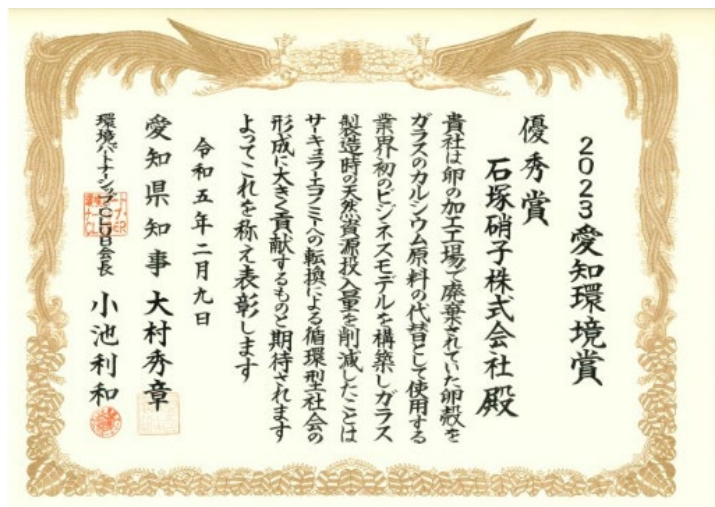 2023愛知環境賞
優秀賞
石塚硝子株式会社殿
貴社は卵の加工工場で廃棄されていた卵殻を
ガラスのカルシウム原料の代替として使用する
業界初のビジネスモデルを構築しガラス
製造時の天然資源投入量を削減したことは
サーキュラーエコノミーへの転換による循環型社会の
形成に大きく貢献するものと期待されます
よってこれを称え表彰します
令和五年二月九日
愛知県知事 大村秀章
環境パートナーシップCLUB会長 小池利和